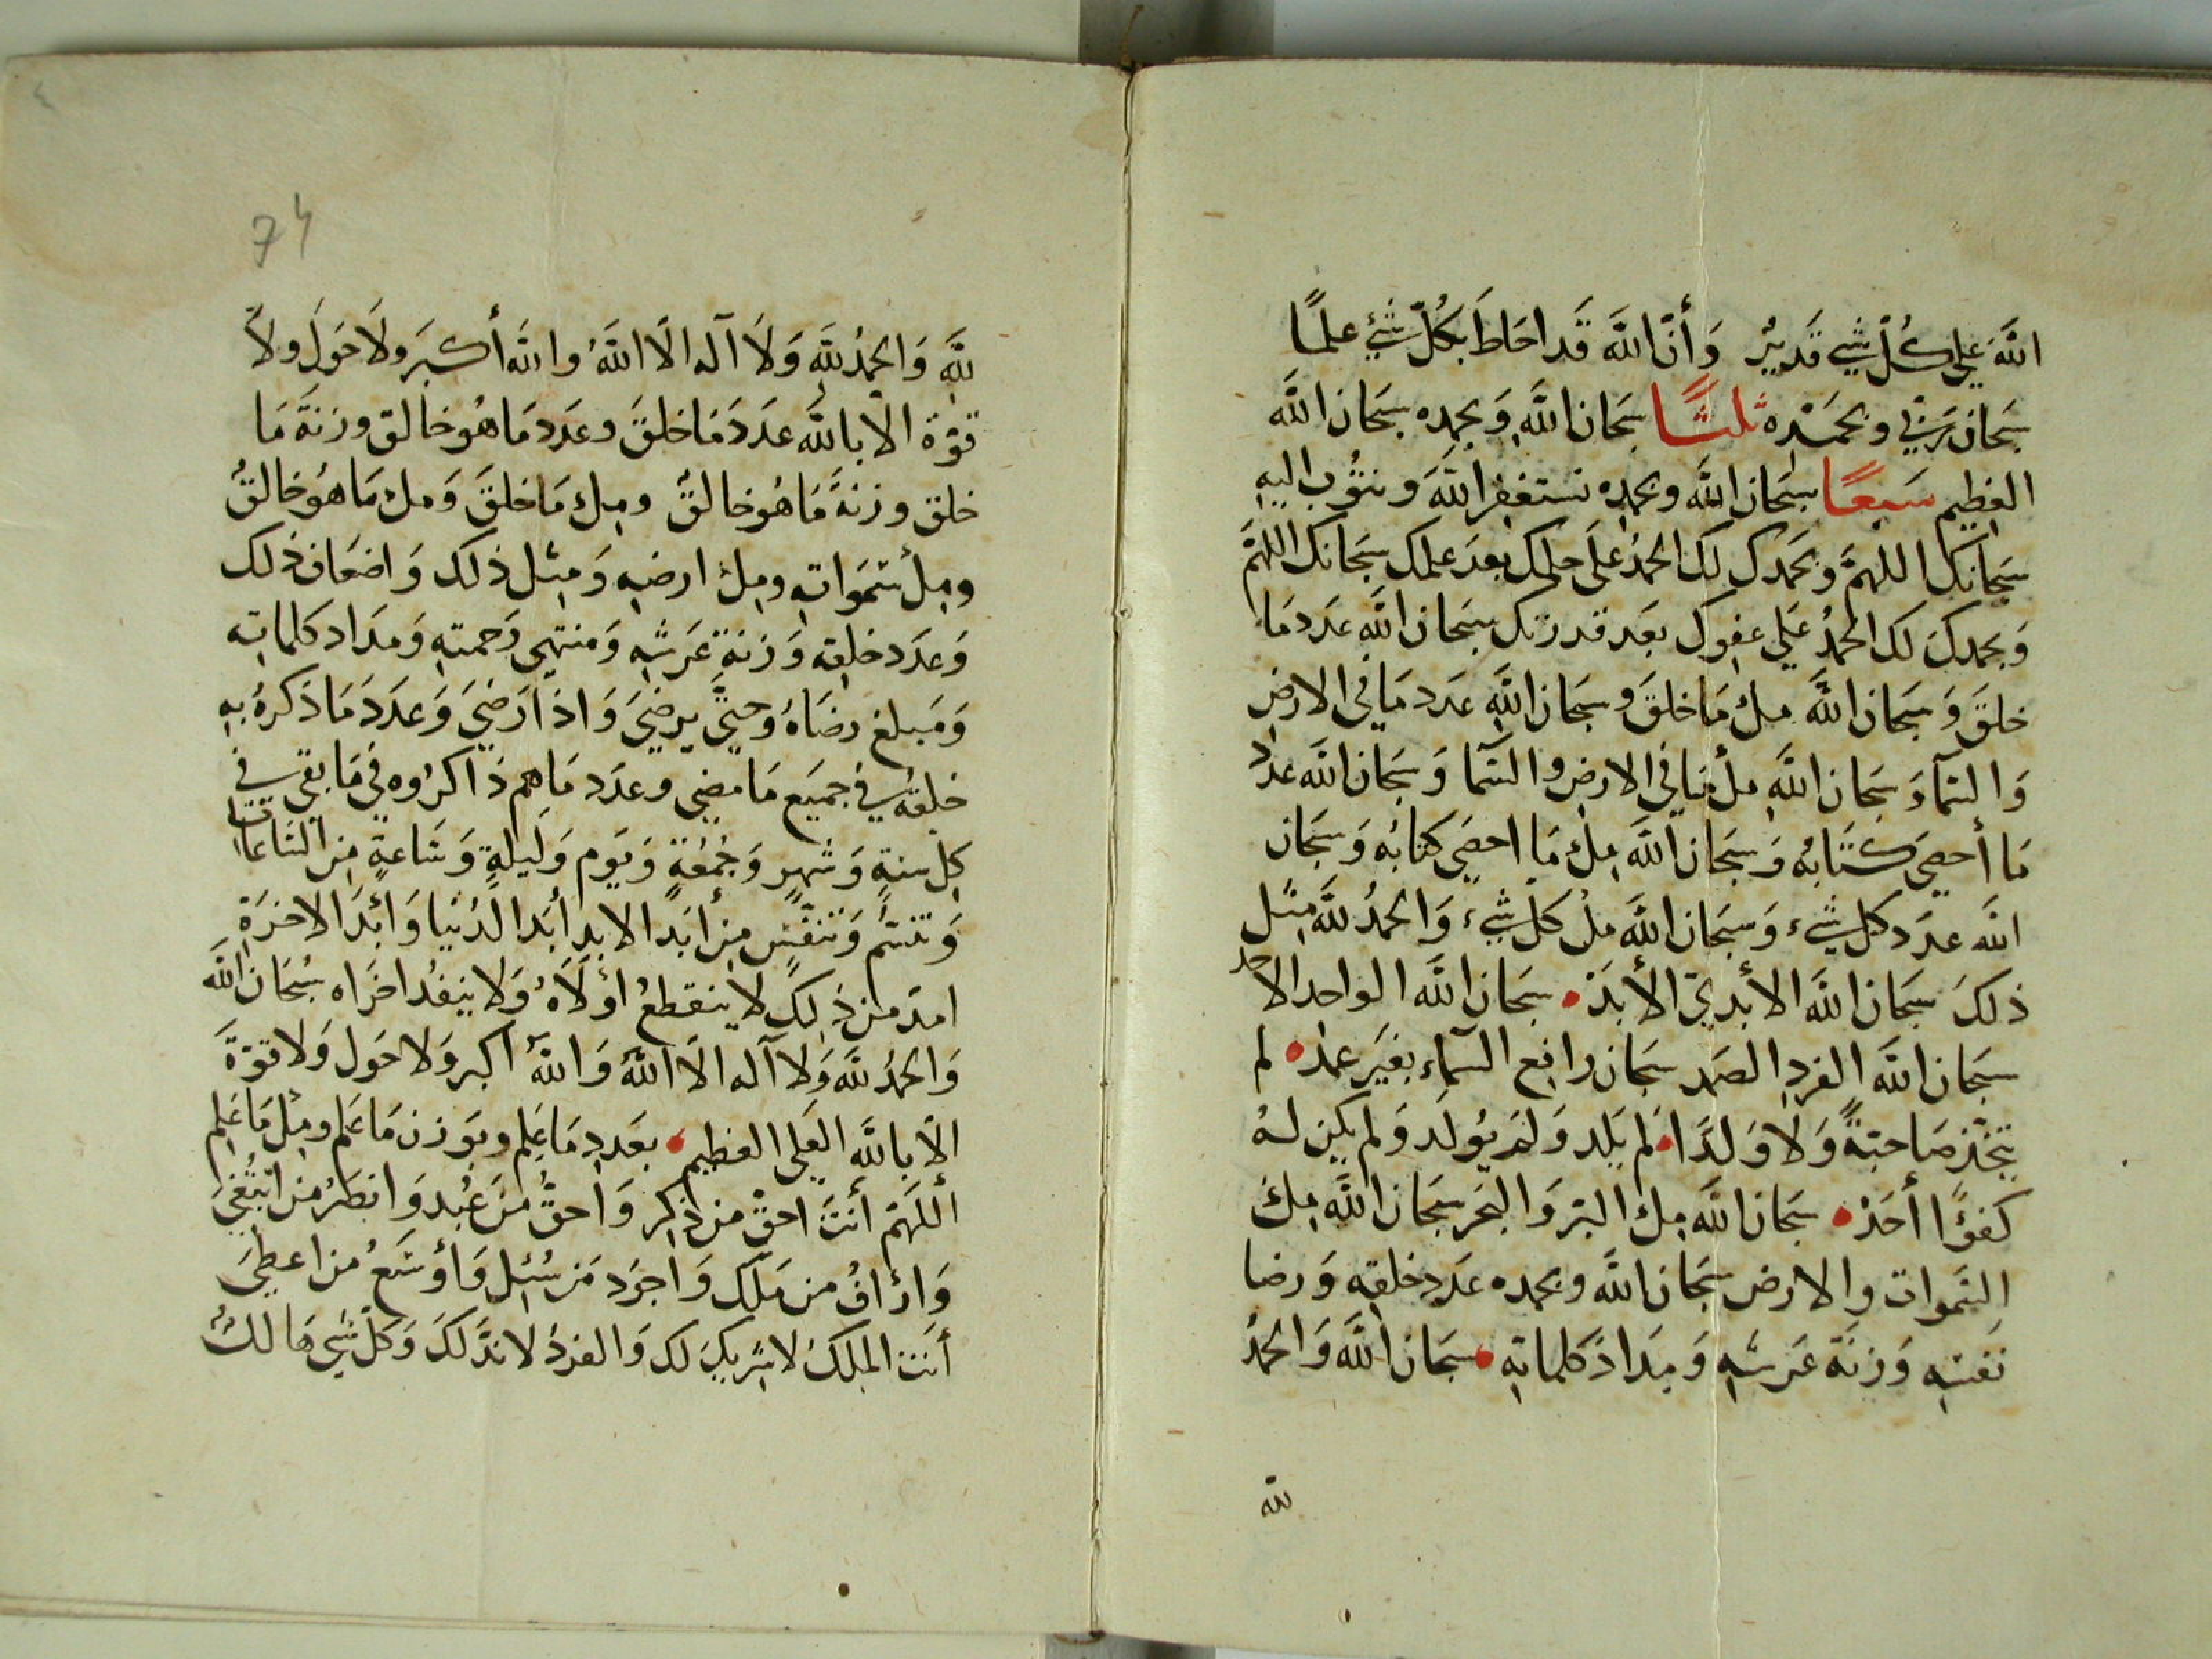 اللَّهَ عَلَى كُلِّ شَيٍ قَدِيرٌ وَأَنَّ اللَّهَ قَد احَاطَ بِكُلِّ شَيْءٍ علمًا
سبحَان رَبِّي وبحَمْدِه ثلثًا سبحَان اللَّهِ وَبحمدِه سبحَان اللَّه
العظِيم سَبعًا سبحَان اللَّه وبحمدِه نستغفِر اللَّهَ ونتُوب اليهِ
سبحَانكَ اللهمَّ وبحَمدكَ لكَ الحمدُ عَلَى حلمكَ بعدَ علمكَ سبحَانكَ اللهمَّ
وَبحمدكَ لكَ الحمدُ عَلي عفوكَ بعَد قدرتكَ سبحَان اللَّه عَدَد مَا
خلقَ وَسبحَان اللَّه ملءَ مَا خلقَ وسبحَان اللَّهِ عدَد مَا فِي الارضِ
وَالسّمآ وَسبحَان اللَّهِ ملأ مَا فِي الارضِ والسّمَآ وَسبحَان اللَّه عدَد
مَا أحصَى كتَابُه وَسبحَان اللَّه مِلءَ مَا احصَي كتابُه وَسبحَان
اللَّه عدَد كل شيءٍ وَسبحَان اللَّه ملْءَ كلِّ شيءٍ وَالحمدُ للَّهِ مثل
ذلكَ سبحَان اللَّه الأبديّ الأبَد سبحَان اللَّه الواحد الاحد
سبحَان اللَّه الفردِ الصَمد سبحَان رافع السّماءِ بغيَر عمدٍ لم
يتخّذ صَاحبَةً وَلَا وَلَدًا لم يَلد وَلَم يُولد وَلم يكن لهُ
كفوًا أحَدْ سبحَان اللَّه مِلءَ البّر وَالبحَر سبحَان اللَّه مِلءَ
السَّموات والارض سبحَان اللَّه وبحمده عدَد خلقِه وَرضا
نفسِه وَزنَة عَرشهِ وَمِدَادَ كلماتِهِ سبحَان اللَّه وَالحمدُ
لله
74
للَّهِ وَالحمدُ للَّهِ وَلَا آله الَّا اللَّهُ واللَّه أكبَر ولَا حَوَلَ ولَا
قوّة الا باللَّه عدَدَ مَا خلقَ وعدَد مَا هُو خالق وزنَة مَا
خلق وزنَةَ مَا هُو خالقٌ ومِلءَ مَا خلقَ وَملءَ مَا هُو خالقٌ
ومِلأ سَموَاتِهِ ومِلءَ ارضهِ وَمِثل ذلكَ وَاضعَاف ذلكَ
وَعدَد خلقِه وَزنَة عَرشهِ وَمنتهي رَحمتهِ وَمدَاد كلماتِه
وَمَبلغ رضَاهُ وحتَّي يرضيَ وَاذا رَضيَ وَعدَدَ مَا ذكرهُ بهِ
خلقهُ في جميَع مَا مضي وعدَد مَا هم ذاكرُوه فِي مَا بقي في
كلِ سنةٍ وَشهرٍ وَجُمُعَةٍ وَيَوم وَلَيلةٍ وَسَاعةٍ مِن السَاعَات
وَنَسَمٍ وَتنفّسٍ مِن أبَد الابدِ أبَد الدُنيَا وَأبَد الاخرَةِ
امَد مِن ذلِكَ لا ينقطعُ اوْلَاهُ وَلا ينفدُ اخرَاه سُبحَان اللَّه
وَالحمدُ للَّه وَلا آله الّا اللَّه وَاللَّهُ اكبر وَلا حَول وَلا قوّةَ
الّا باللَّهِ العَلي العظِيم بعَدد مَا عَلم وبوَزن مَا عَلم ومِثل مَا عَلِم
أللَهمّ أنتَ احقّ من ذُكِر وَاحقُّ مَن عُبِد وَانصَرُ من ابتُغيَ
وَارْأفُ من مَلَك وَاجوَد مَن سُئِل وَأوسَعُ من اعطَي
أنتَ المَلِكُ لا شريكَ لكَ وَالفردُ لا ندّ لكَ وَكلُ شَيٍ هَالكٌ